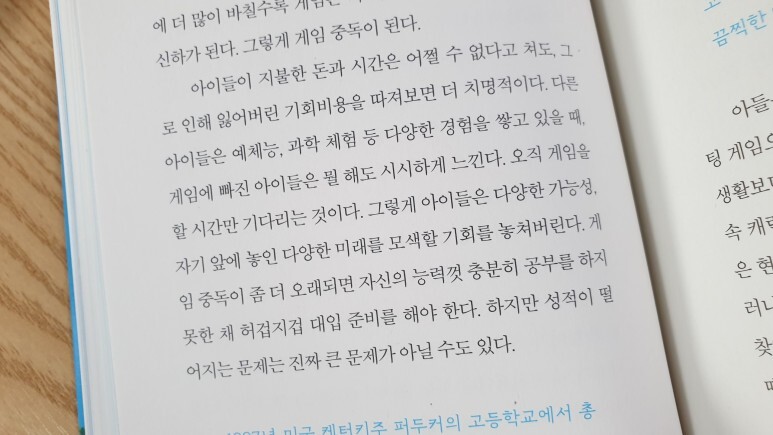 에 더 많이 바칠수록 게임은
신하가 된다. 그렇게 게임 중독이 된다.
아이들이 지불한 돈과 시간은 어쩔 수 없다고 쳐도, 그
로 인해 잃어버린 기회비용을 따져보면 더 치명적이다. 다른
아이들은 예체능, 과학 체험 등 다양한 경험을 쌓고 있을 때,
게임에 빠진 아이들은 뭘 해도 시시하게 느낀다. 오직 게임을
할 시간만 기다리는 것이다. 그렇게 아이들은 다양한 가능성,
자기 앞에 놓인 다양한 미래를 모색할 기회를 놓쳐버린다. 게
임 중독이 좀 더 오래되면 자신의 능력껏 충분히 공부를 하지
못한 채 허겁지겁 대입 준비를 해야 한다. 하지만 성적이 떨
어지는 문제는 진짜 큰 문제가 아닐 수도 있다.
미국 켄터키주 퍼두커의 고등학교에서 총
끔찍한
아들
팅 게임으
생활보다
속 캐릭
은 현
러니
찾